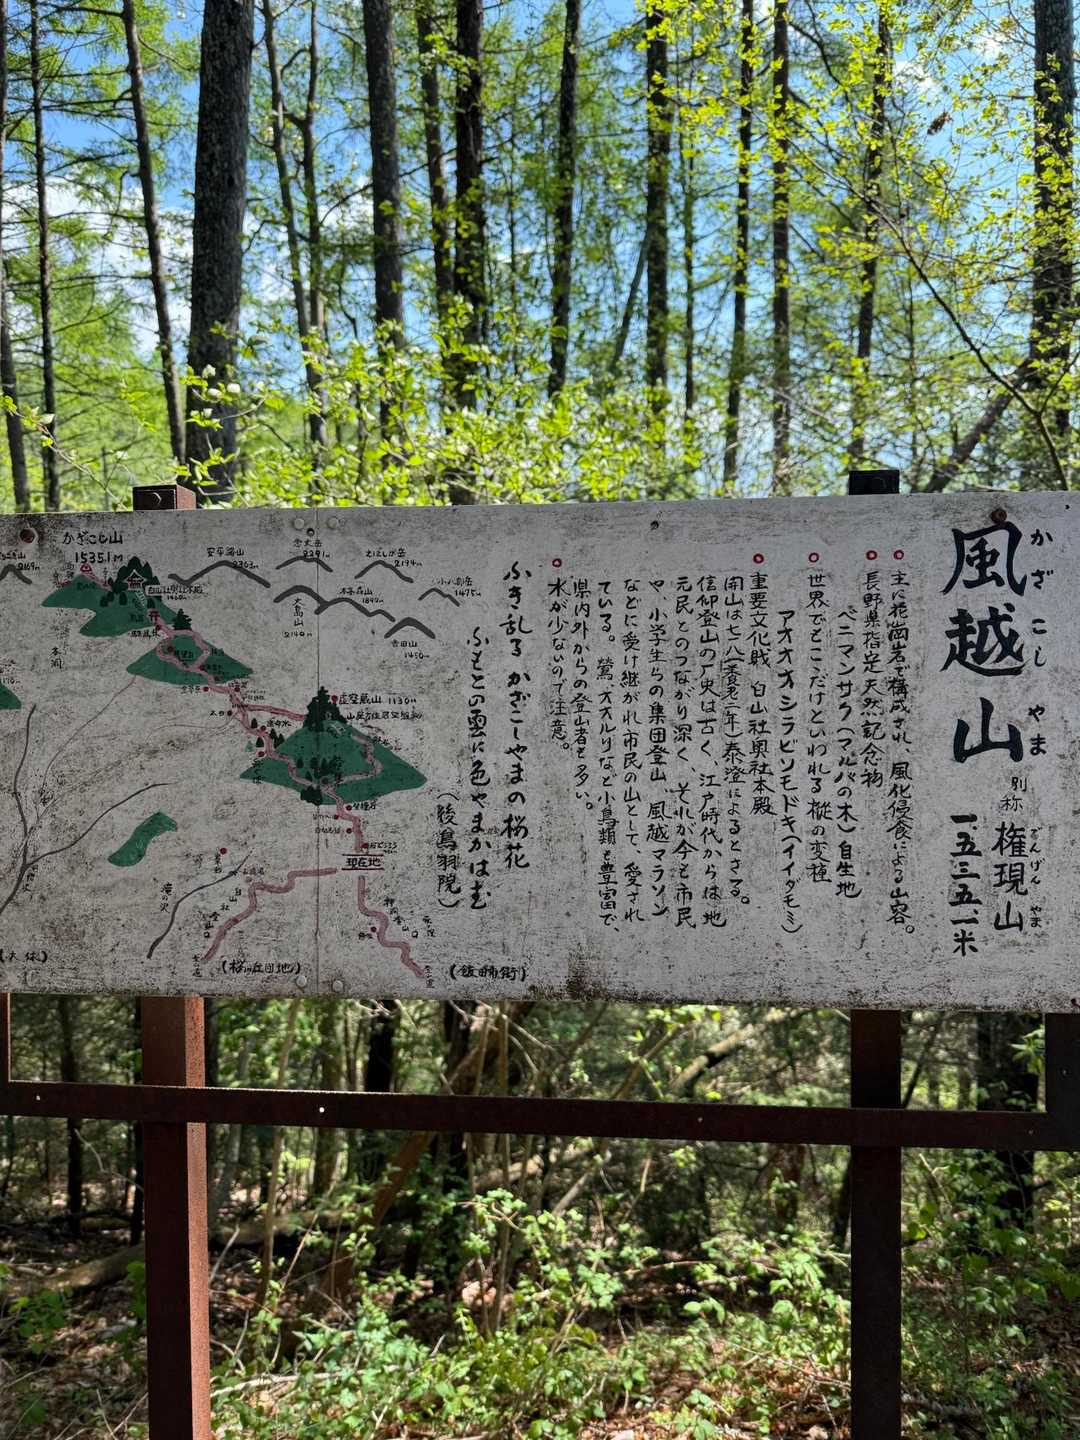 風越山
かざこしやま
別称 権現山
ごんげんやま
一、五三五・一米
主に花崗岩で構成され、風化侵食による山容。
長野県指定天然記念物
ベニマンサク(マルバの木)自生地
世界でもここだけといわれる樅の変種
アオオオシラビソモドキ(イイダモミ)
重要文化財 白山社奥社本殿
開山は七一八(養老二年)泰澄によるとさる。
信仰登山の歴史は古く、江戸時代からは地
元民とのつながり深く、それが今も市民
や、小学生らの集団登山、風越マラソン
などに受け継がれ市民の山として、愛され
ている。鶯、オオルリなど小鳥類も豊富で、
県内外からの登山者も多い。
水が少ないので注意。
ふき乱るかざこしやまの桜花
ふもとの雲に色やまがはむ
(後鳥羽院)
小八郎岳
1475m
えぼしが岳
2194m
念丈岳
2291m
安平路山
2363m
本高森山
1890m
吉田山
1450m
大島山
2140m
かざこし山
1535.1M
白山社奥社本殿
虚空蔵山 1130m
延命水
現在地
滝の沢
(桜ヶ丘団地)
(飯田市街)